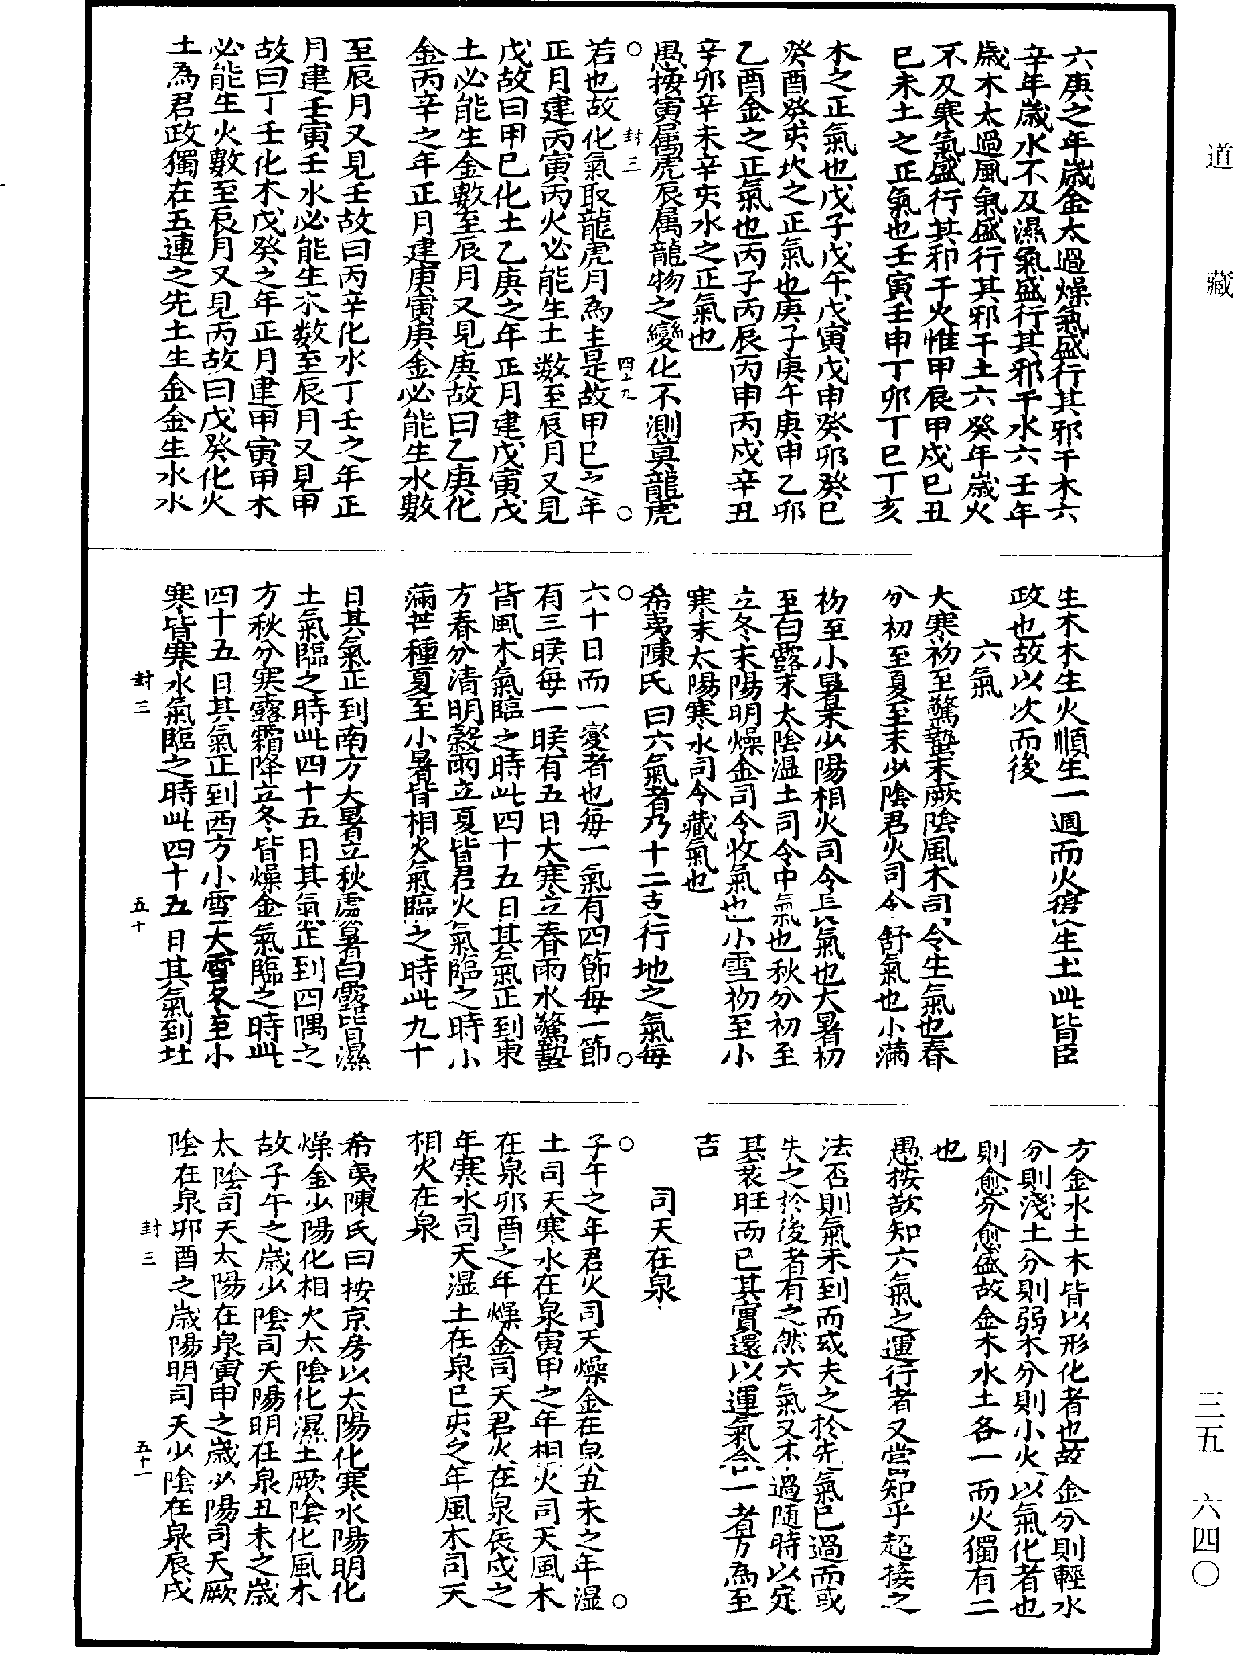 道藏
三五
六四〇
六庚之年歲金太過燥氣盛行其邪干木六
辛年歲水不及濕氣盛行其邪干水六壬年
歲木太過風氣盛行其邪干土六癸年歲火
不及寒氣盛行其邪干火惟甲辰甲戌巳丑
巳未土之正氣也壬寅壬申丁卯丁巳丁亥
木之正氣也戊子戊午戊寅戊申癸卯癸巳
癸酉癸亥坎之正氣也庚子庚午庚申乙卯
乙酉金之正氣也丙子丙辰丙申丙戌辛丑
辛卯辛未辛亥水之正氣也
愚按寅属虎辰属龍物之變化不測莫龍虎
封三
四十九
若也故化氣取龍虎月為主是故甲巳之年
正月建丙寅丙火必能生土數至辰月又見
戊故曰甲巳化土乙庚之年正月建戊寅戊
土必能生金數至辰月又見庚故曰乙庚化
金丙辛之年正月建庚寅庚金必能生水數
至辰月又見壬故曰丙辛化水丁壬之年正
月建壬寅壬水必能生木數至辰月又見甲
故曰丁壬化木戊癸之年正月建甲寅甲木
必能生火數至辰月又見丙故曰戊癸化火
土為君政獨在五連之先土生金金生水水
生木木生火順生一週而火復生土此皆臣
政也故以次而後
六氣
大寒初至驚蟄末厥陰風木司令生氣也春
分初至夏至末少陰君火司令舒氣也小滿
初至小暑末少陽相火司令長氣也大暑初
至白露末太陰温土司令中氣也秋分初至
立冬末陽明燥金司令收氣也小雪初至小
寒末太陽寒水司令藏氣也
希夷陳氏曰六氣者乃十二支行地之氣每
六十日而一變者也每一氣有四節每一節
有三睺每一睺有五日大寒立春雨水驚蟄
皆風木氣臨之時此四十五日其氣正到東
方春分清明穀雨立夏皆君火氣臨之時小
滿芒種夏至小暑皆相火氣臨之時此九十
日其氣正到南方大暑立秋處暑白露皆濕
土氣臨之時此四十五日其氣正到四隅之
方秋分寒露霜降立冬皆燥金氣臨之時此
四十五日其氣正到西方小雪大雪冬至小
寒皆寒水氣臨之時此四十五日其氣到北
封三
五十
方金水土木皆以形化者也故金分則輕水
分則淺土分則弱木分則小火以氣化者也
則愈分愈盛故金木水土各一而火獨有二
也
愚按欲知六氣之運行者又當知乎超接之
法否則氣未到而或夫之於先氣已過而或
失之於後者有之然六氣又不過隨時以定
其衰旺而已其實還以運氣合一者方為至
吉
司天在泉
子午之年君火司天燥金在泉丑未之年湿
土司天寒水在泉寅甲之年相火司天風木
在泉卯酉之年燥金司天君火在泉辰戍之
年寒水司天湿土在泉巳亥之年風木司天
相火在泉
希夷陳氏曰按京房以太陽化寒水陽明化
燥金少陽化相火太陰化濕土厥陰化風木
故子午之歲少陰司天陽明在泉丑未之歲
太陰司天太陽在泉寅申之歲少陽司天厥
陰在泉卯酉之歲陽明司天少陰在泉辰戌
封三
五十一